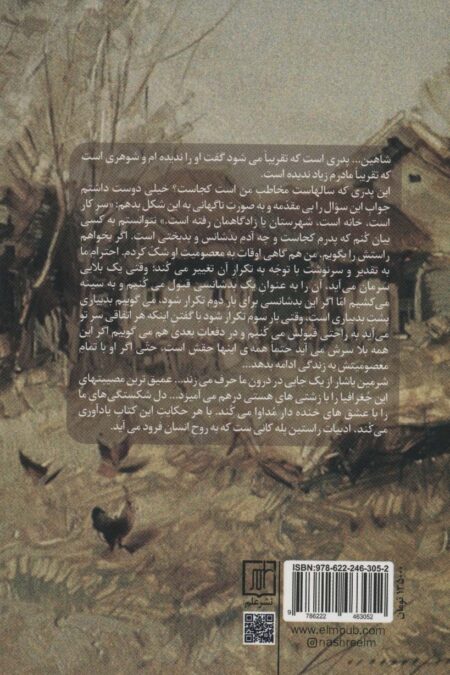 شاهین... پدری است که تقریبا می شود گفت او را ندیده ام و شوهری است
که تقریبا مادرم زیاد ندیده است.
این پدری که سالهاست مخاطب من است کجاست؟ خیلی دوست داشتم
جواب این سؤال را بی مقدمه و به صورت ناگهانی به این شکل بدهم: «سر کار
است، خانه است، شهرستان یا زادگاهمان رفته است.» نتوانستم به کسی
بیان کنم که پدرم کجاست و چه آدم بدشانس و بدبختی است. اگر بخواهم
راستش را بگویم، من هم گاهی اوقات به معصومیت او شک کردم. احترام ما
به تقدیر و سرنوشت با توجه به تکرار آن تغییر می کند؛ وقتی یک بلایی
سرمان می آید، آن را به عنوان یک بدشانسی قبول می کنیم و به سینه
می کشیم اما اگر این بدشانسی برای بار دوم تکرار شود، می گوییم بدبیاری
پشت بدبیاری است. وقتی بار سوم تکرار شود با گفتن اینکه هر اتفاقی سر تو
می آید به راحتی قبولش می کنیم و در دفعات بعدی هم می گوییم اگر این
همه بلا سرش می آید حتما همه ی اینها حقش است. حتّی اگر او با تمام
معصومیتش به زندگی ادامه بدهد...
شرمین یاشار از یک جایی در درون ما حرف می زند... عمیق ترین مصیبتهای
این جغرافیا را با زشتی های هستی درهم می آمیزد... دل شکستگی های ما
را با عشق های خنده دار مداوا می کند. با هر حکایت این کتاب یادآوری
می کند، ادبیات راستین پله کانی ست که به روح انسان فرود می آید.
ISBN: 978-622-246-305-2
9 786222 463052
۱۳۵۰۰۰ تومان
نشر علم
www.elmpub.com
@nashreelm